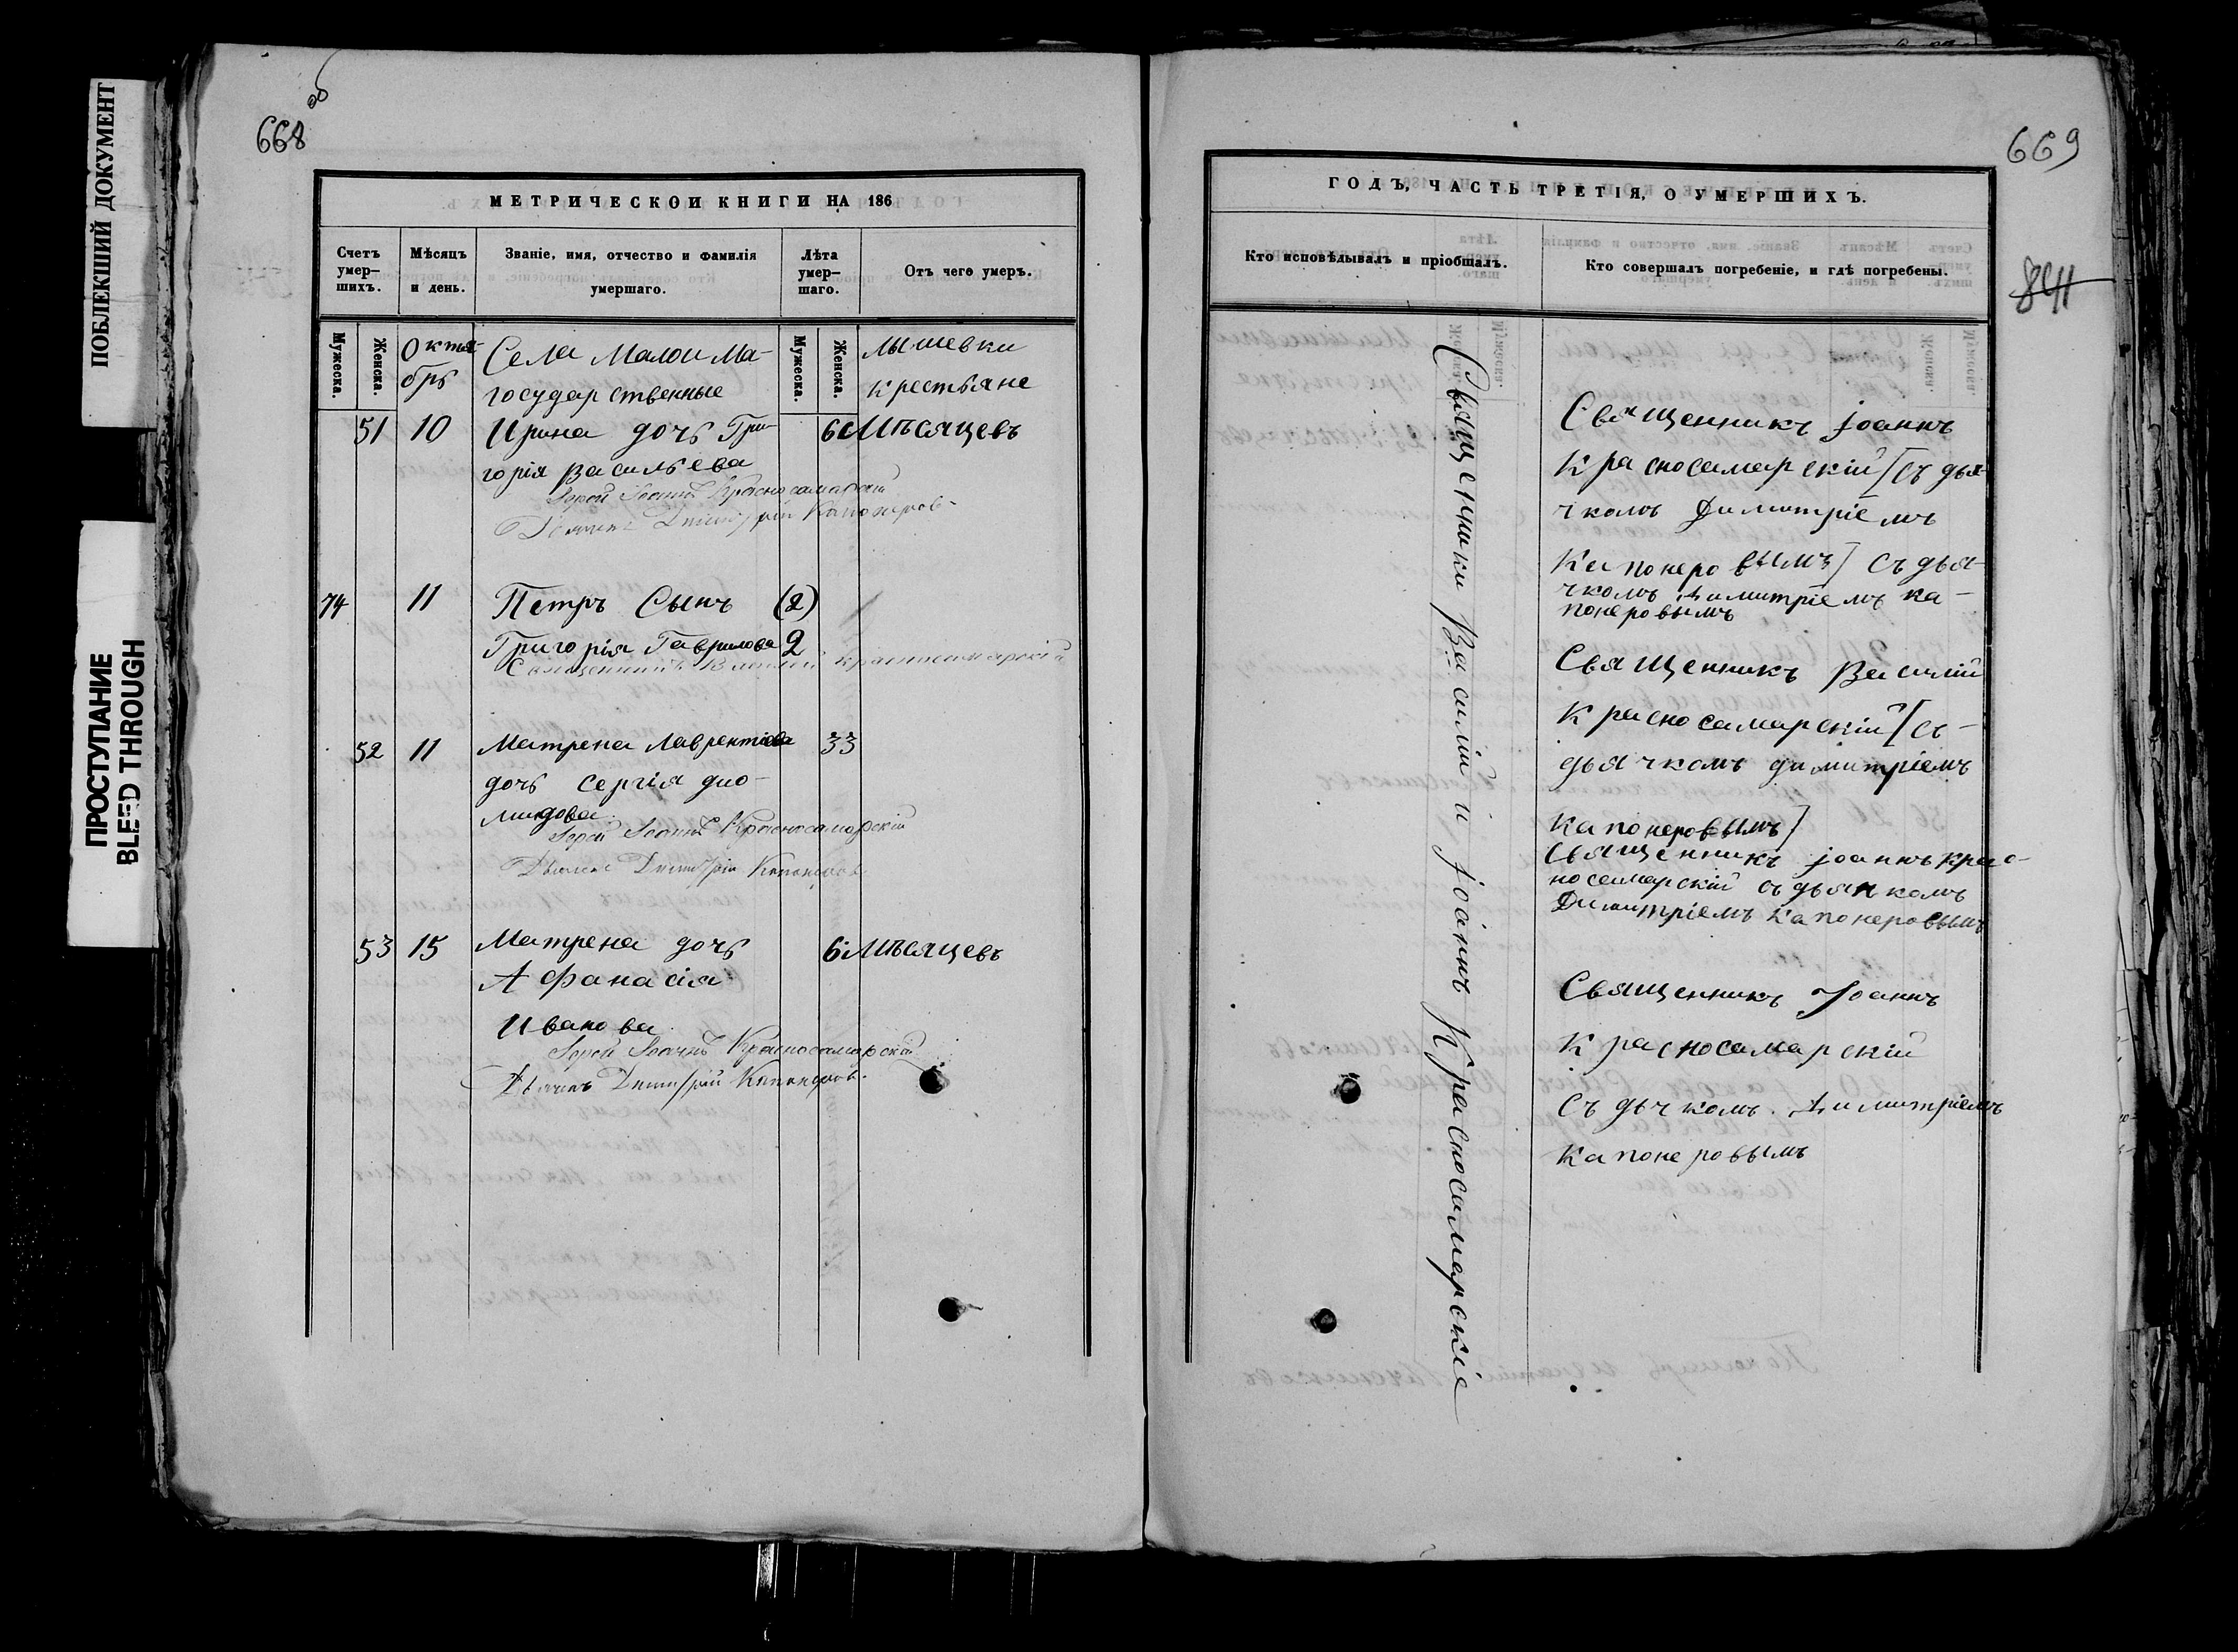 ПОБЛЕКШИЙ ДОКУМЕНТ
ПРОСТУПАНИЕ
BLEED THROUGH
668 об
МЕТРИЧЕСКОЙ КНИГИ НА 186
Счетъ умер-шихъ.
Мѣсяцъ и день.
Званіе, имя, отчество и фамилія умершаго.
Лѣта умер-шаго.
Отъ чего умеръ.
Мужеска.
Женска.
Октя-
брь
Села Малой Ма-
государственные
Мужеска.
Женска.
лышевки
крестьяне
51 10 Ирина дочь Гри- 6 Мѣсяцевъ
горія Васильева
Іерей Іоаннъ Красносамарскій
Дьячекъ Димитрій Капонеров
74 11 Петръ Сынъ (2)
Григорія Гаврилова 2
Священникъ Василий Красносамарскій
52 11 Матрена Лаврентіева 33
дочь Сергія дио-
мидова
Іерей Іоаннъ Красносамарскій
Дьячекъ Димитрій Капонеров
53 15 Матрена дочь 6 Мѣсяцевъ
Афанасія
Иванова
Іерей Іоаннъ Красносамарскій
Дьячекъ Димитрій Капонеров.
669
841
ГОДЪ, ЧАСТЬ ТРЕТІЯ, О УМЕРШИХЪ.
Кто исповѣдывалъ и пріобщалъ.
Кто совершалъ погребеніе, и гдѣ погребены.
Священники Василій и Іоаннъ Красносамарскіе
Священникъ Іоаннъ
Красносамарскій [съ дья-
чкомъ Димитріемъ
Капонеровымъ] съ дья-
чкомъ Димитріемъ Ка-
понеровымъ
Священникъ Василій
Красносамарскій [съ-
дьячкомъ димитріемъ
Капонеровымъ]
Священникъ Іоаннъ Крас-
носамарскій съ дьячкомъ
Димитріемъ Капонеровымъ
Священникъ Іоаннъ
Красносамарскій
съ дьчкомъ. Димитріемъ
Капонеровымъ